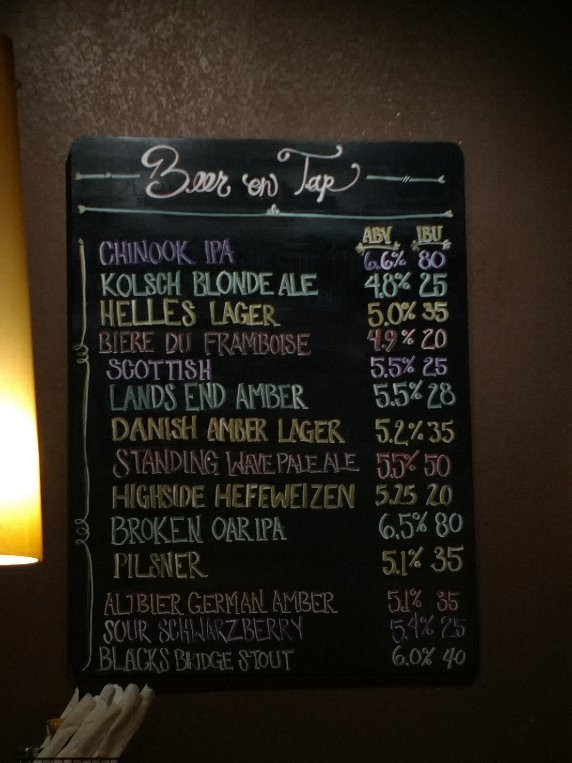 Beer on Tap
ABV IBU
CHINOOK IPA 6.6% 80
KOLSCH BLONDE ALE 4.8% 25
HELLES LAGER 5.0% 35
BIERE DU FRAMBOISE 4.9% 20
SCOTTISH 5.5% 25
LANDS END AMBER 5.5% 28
DANISH AMBER LAGER 5.2% 35
STANDING WAVE PALE ALE 5.5% 50
HIGHSIDE HEFEWEIZEN 5.25 20
BROKEN OAR IPA 6.5% 80
PILSNER 5.1% 35
ALTBIER GERMAN AMBER 5.1% 35
SOUR SCHWARZBERRY 5.4% 25
BLACKS BRIDGE STOUT 6.0% 40